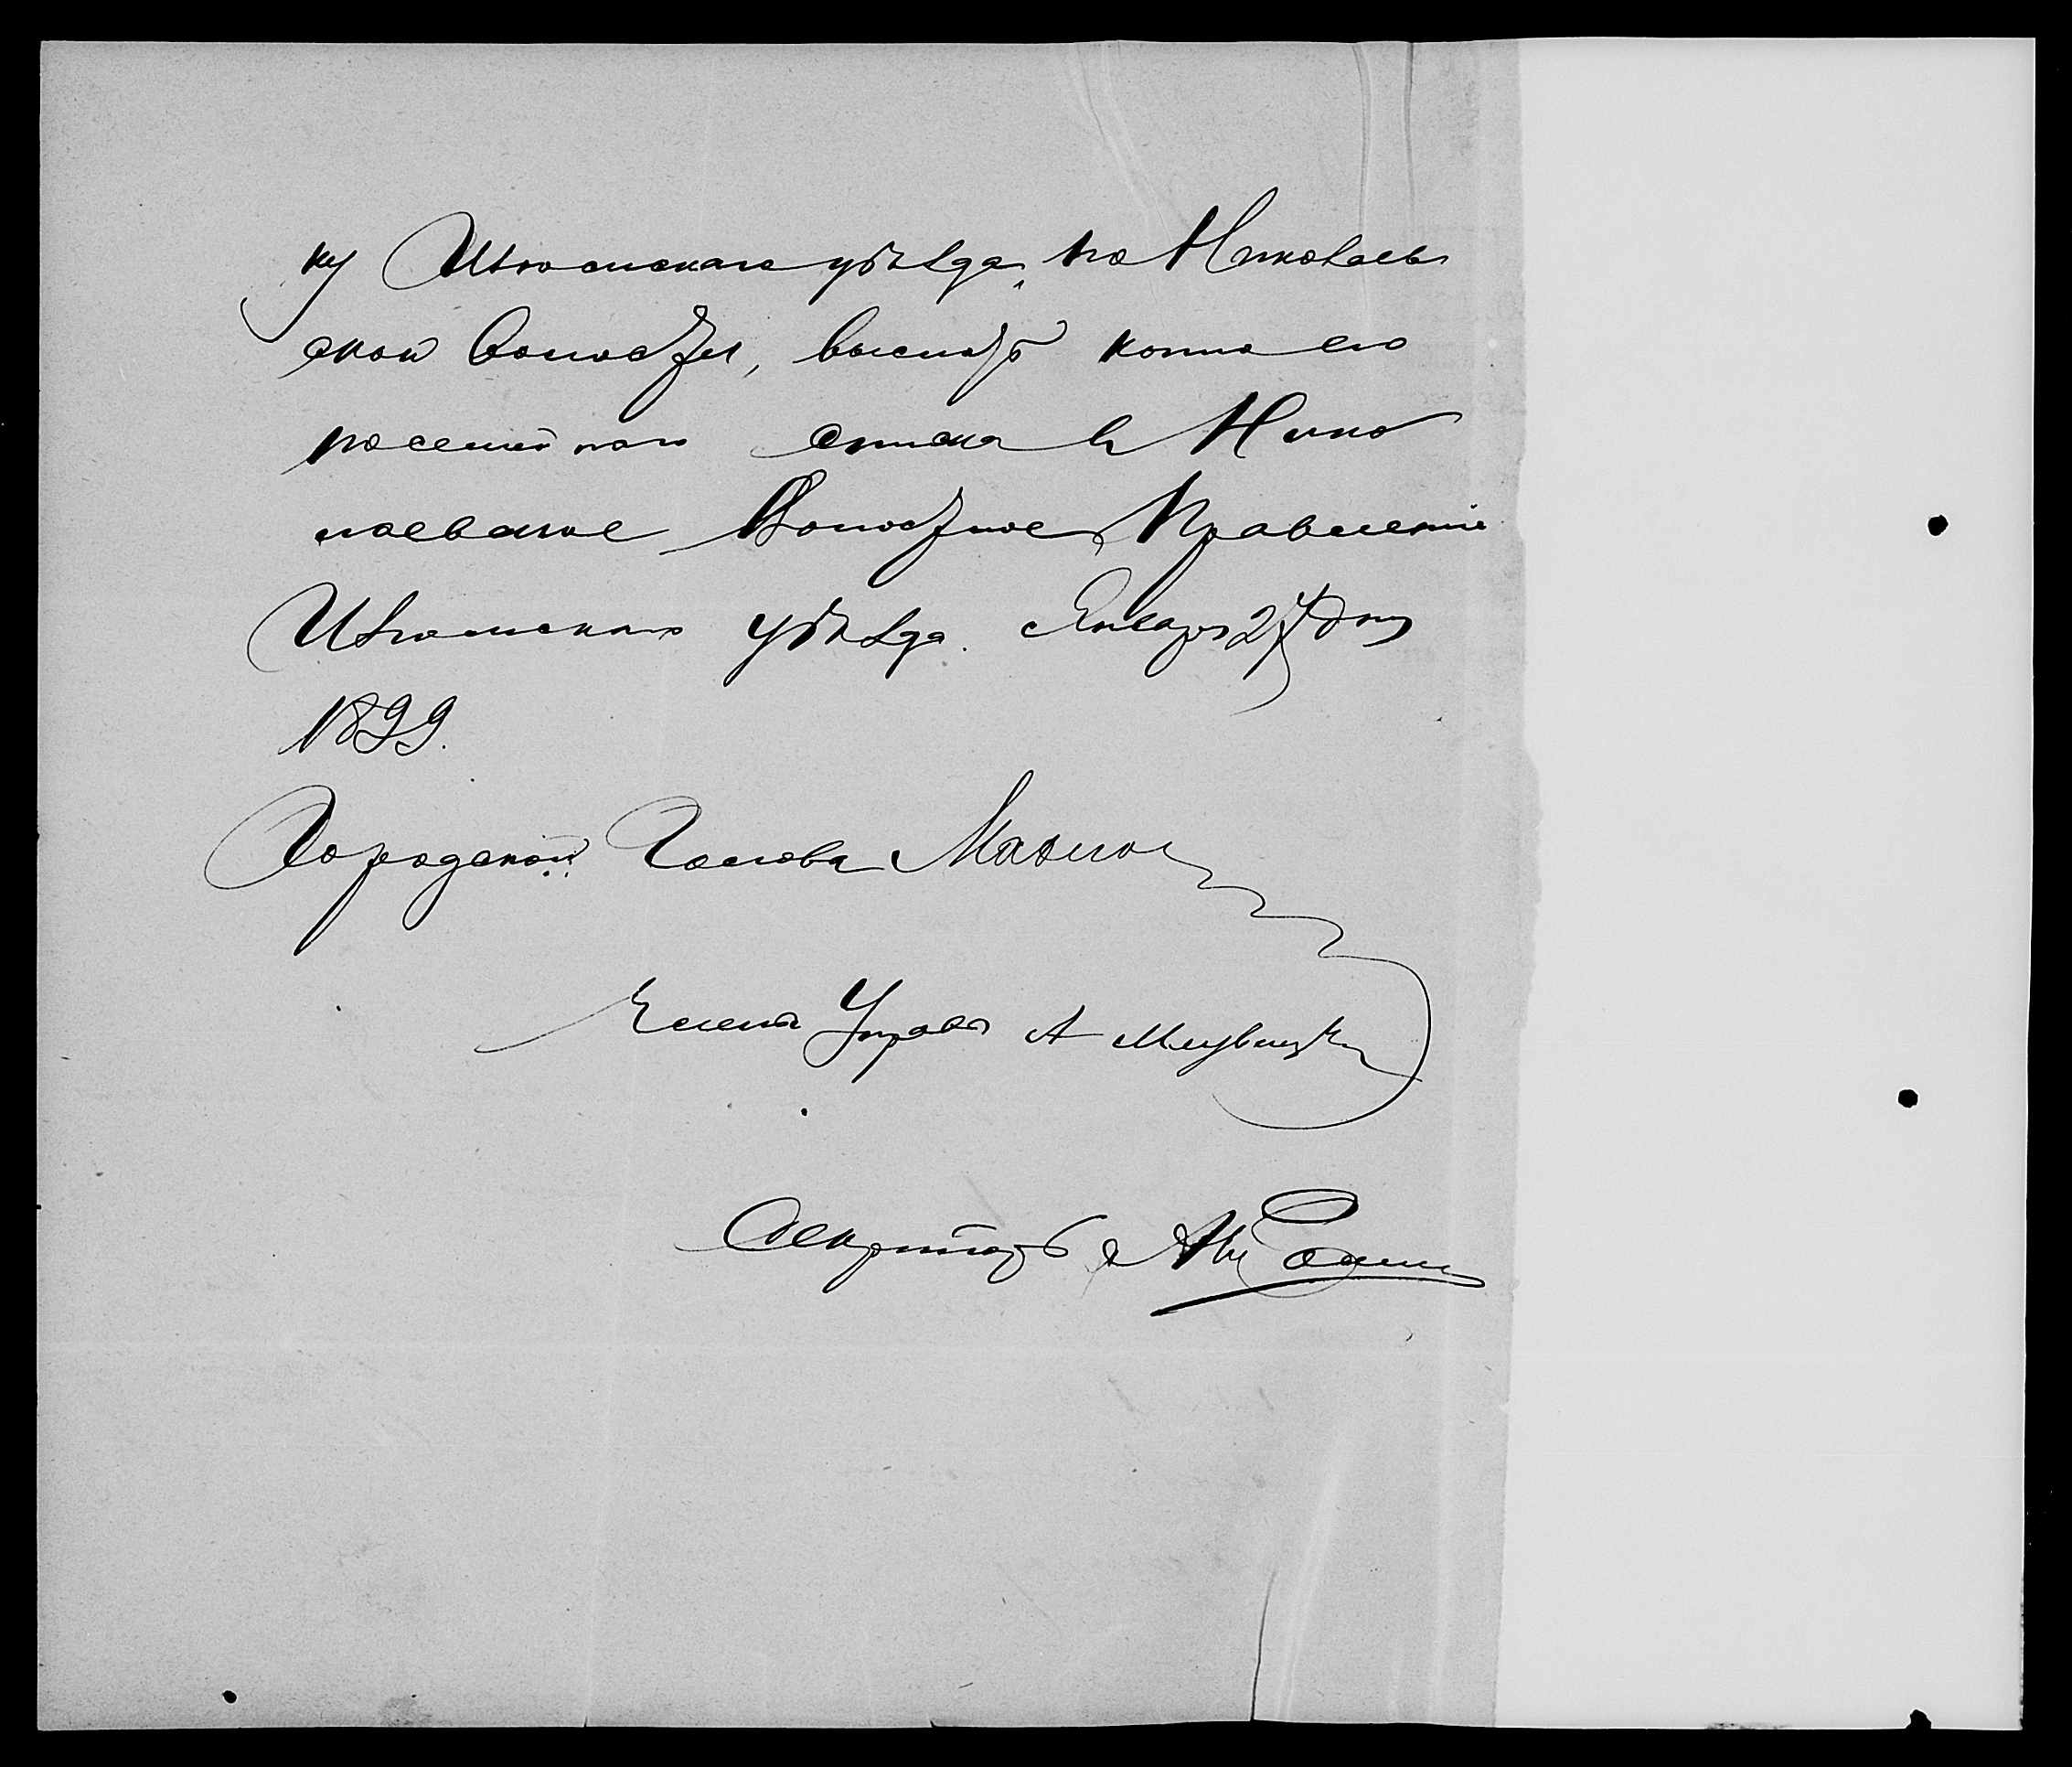 ку Изюмскаго уѣзда, по Николаев
ской волости, выслать копію его
посемейнаго списка в Нико
лаевское Волостное Правленіе
Изюмскаго уѣзда. Января 27 дня
1899.
Городской Голова
Членъ Управы А
Секретарь